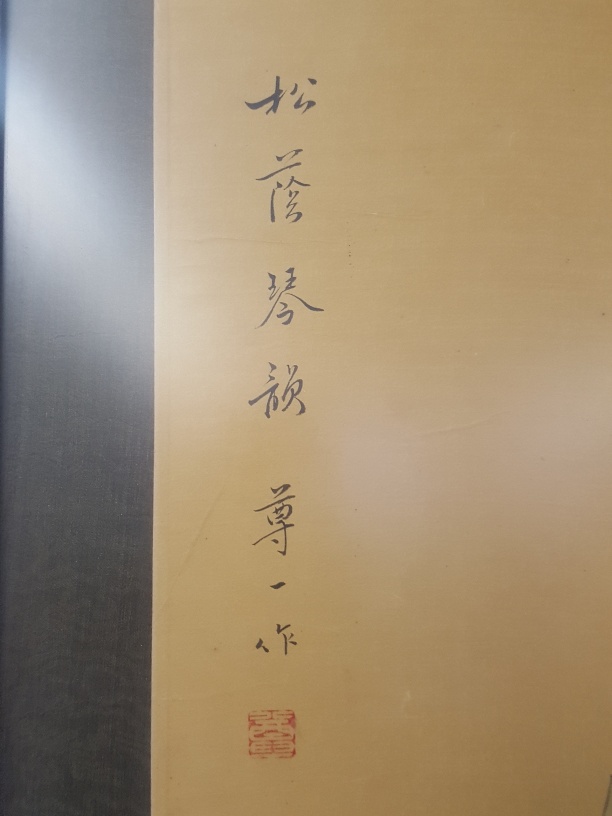 松蔭琴韻 尊一作